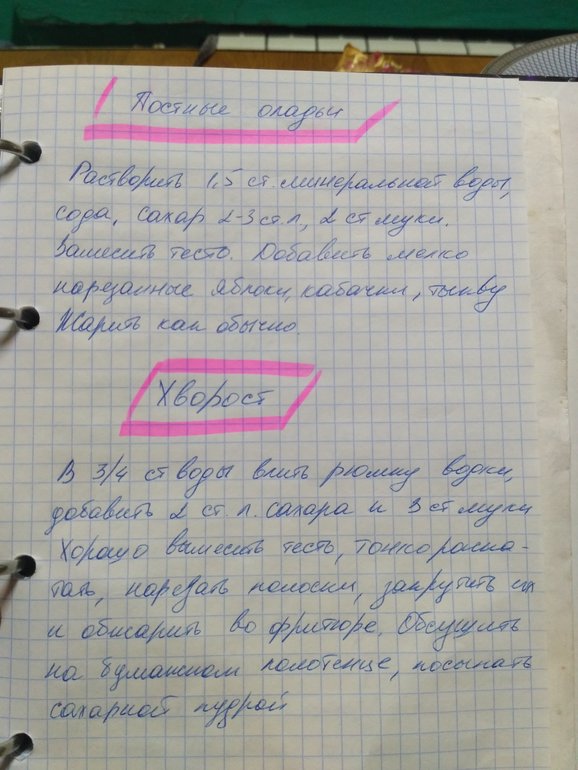 Постные оладьи
Растворить 1,5 ст. минеральной воды,
сода, сахар 2-3 ст. л, 2 ст муки.
Замесить тесто. Добавить мелко
нарезанные яблоки, кабачки, тыкву
Жарить как обычно.
Хворост
В 3/4 ст воды влить рюмку водки,
добавить 2 ст. л. сахара и 3 ст муки
Хорошо вымесить тесть, тонко раска-
тать, нарезать полоски, закрутить их
и обжарить во фритюре. Обсушить
на бумажном полотенце, посыпать
сахарной пудрой